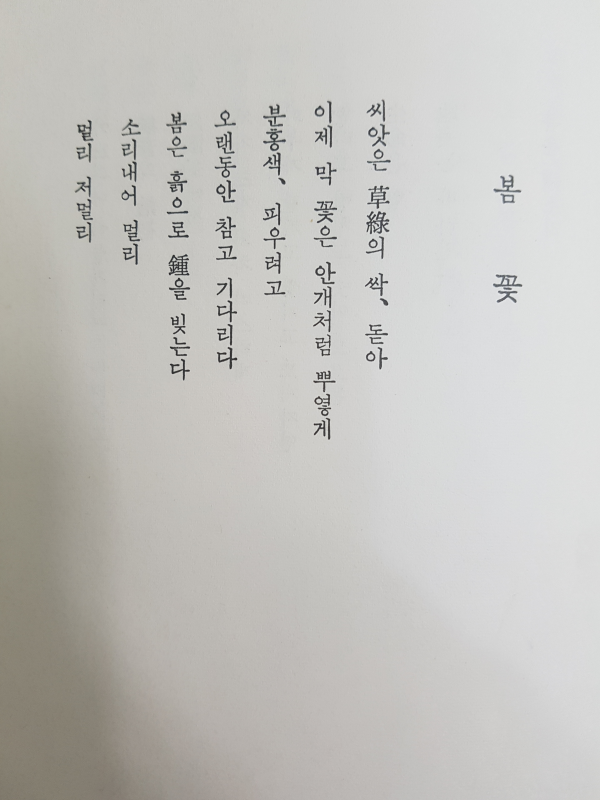 봄 꽃
씨앗은 草綠의 싹、 돋아
이제 막 꽃은 안개처럼 뿌옇게
분홍색、 피우려고
오랜동안 참고 기다리다
봄은 흙으로 鍾을 빚는다
소리내어 멀리
멀리 저멀리